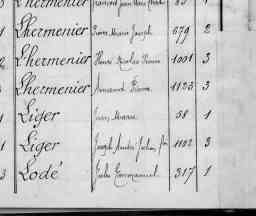 Lhermenier 83 1
1 Lhermenier Pierre Marie Joseph 679 2
2 Lhermenier Henri Nicolas Pierre 1001 3
Lhermenier Armand Pierre 1123 3
1 Liger Jean Marie 58 1
1 Liger Joseph 1102 3
3 Lodé Jules Emmanuel 317 1